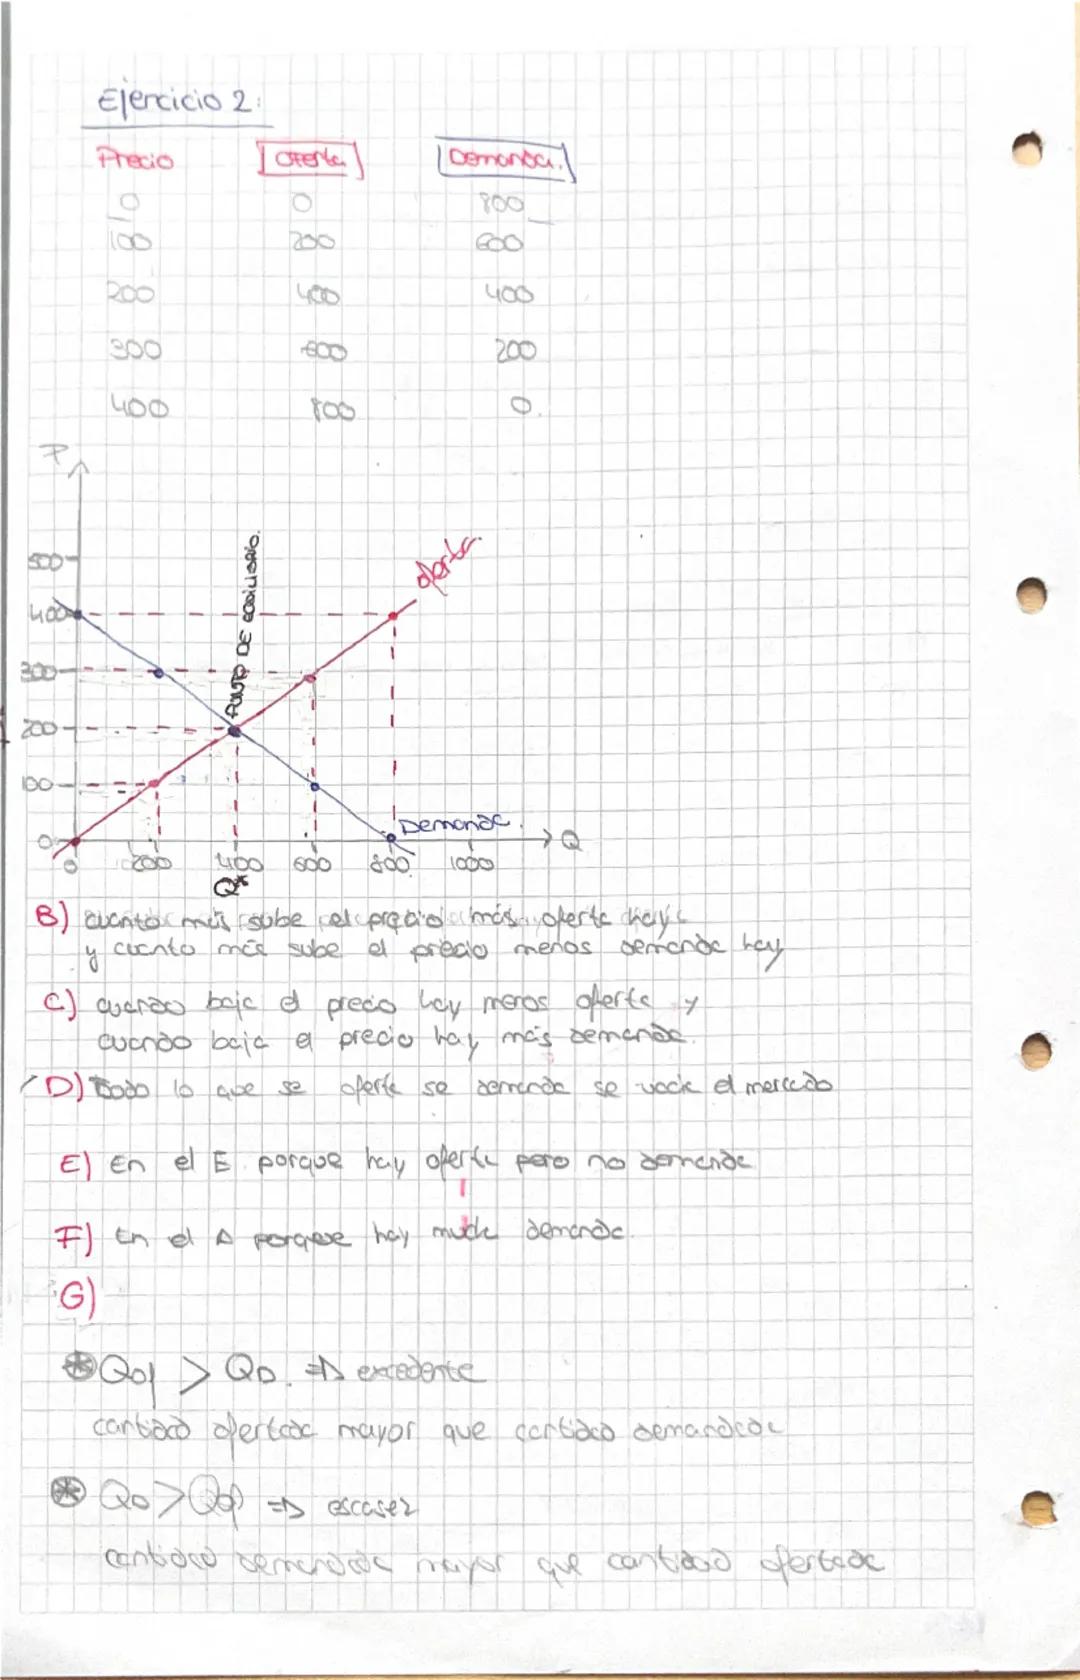 Ejercicio 2:
Precio Oferta Demanda.
0 0 800
100 200 600
200 400 400
300 600 200
400 800 0.
P
500
400
300
200
100
0
PUNTO DE EQUILIBRIO.
oferta.
Demanda.
Q
0 200 400 600 800 1000
Q*
B) cuanto más sube el precio más oferta hay
y cuanto más sube el precio menos demanda hay
C) cuando baja el precio hay menos oferta y
cuando baja el precio hay más demanda.
D) Todo lo que se oferta se demanda se vacia el mercado
E) En el E porque hay oferta pero no demanda
F) En el A porque hay mucha demanda.
G)
* Qof > QD. => excedente
cantidad ofertada mayor que cantidad demandada
* QD > Qof => escasez
cantidad demandada mayor que cantidad ofertada